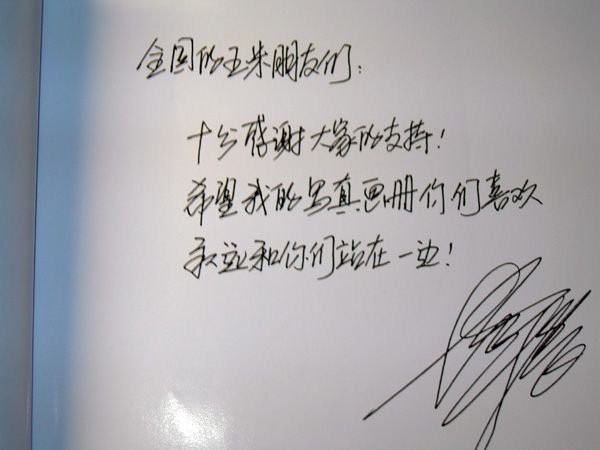 全国的玉米朋友们:
十分感谢大家的支持!
希望我的写真画册你们喜欢
和你们站在一边!